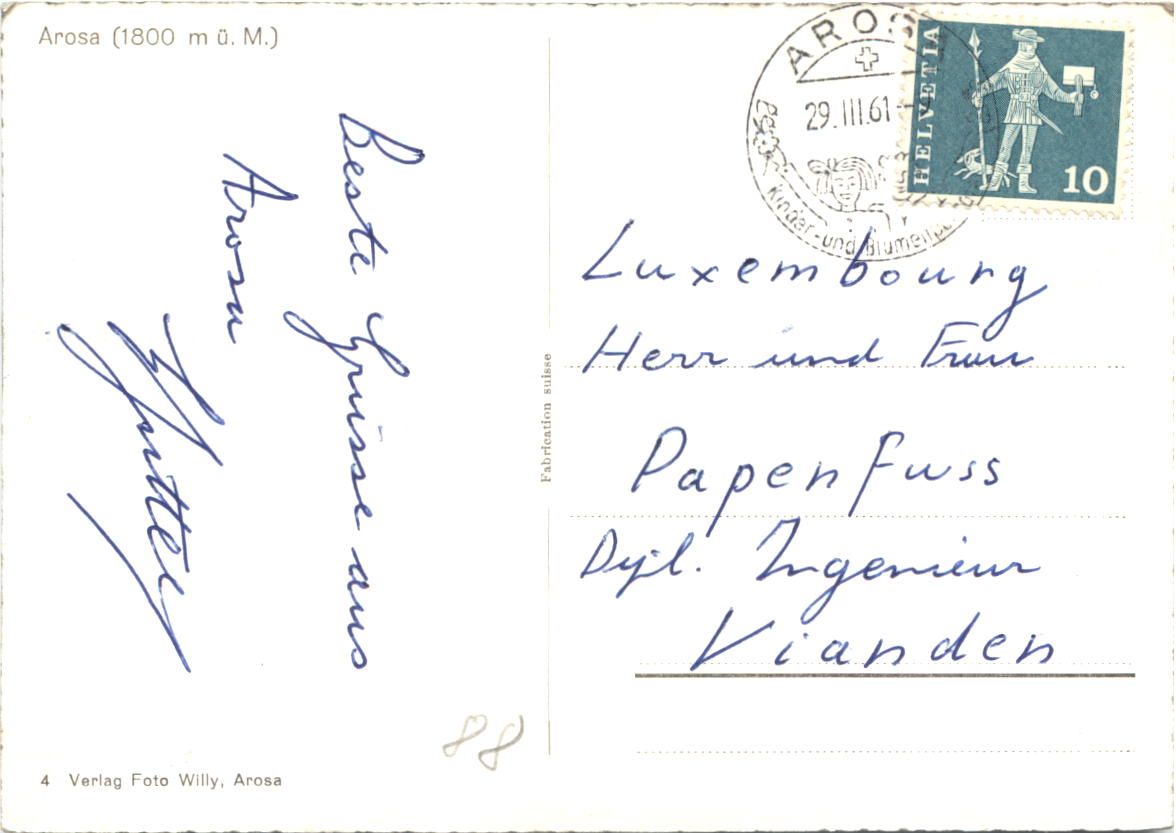 Arosa (1800 m ü. M.)
Beste Grüsse aus
Arosa
AROSA
29.III.61
Kinder- und Blumen
HELVETIA
10
Luxembourg
Herr und Frau
Papenfuss
Dipl. Ingenieur
Vianden
Fabrication suisse
88
4 Verlag Foto Willy, Arosa